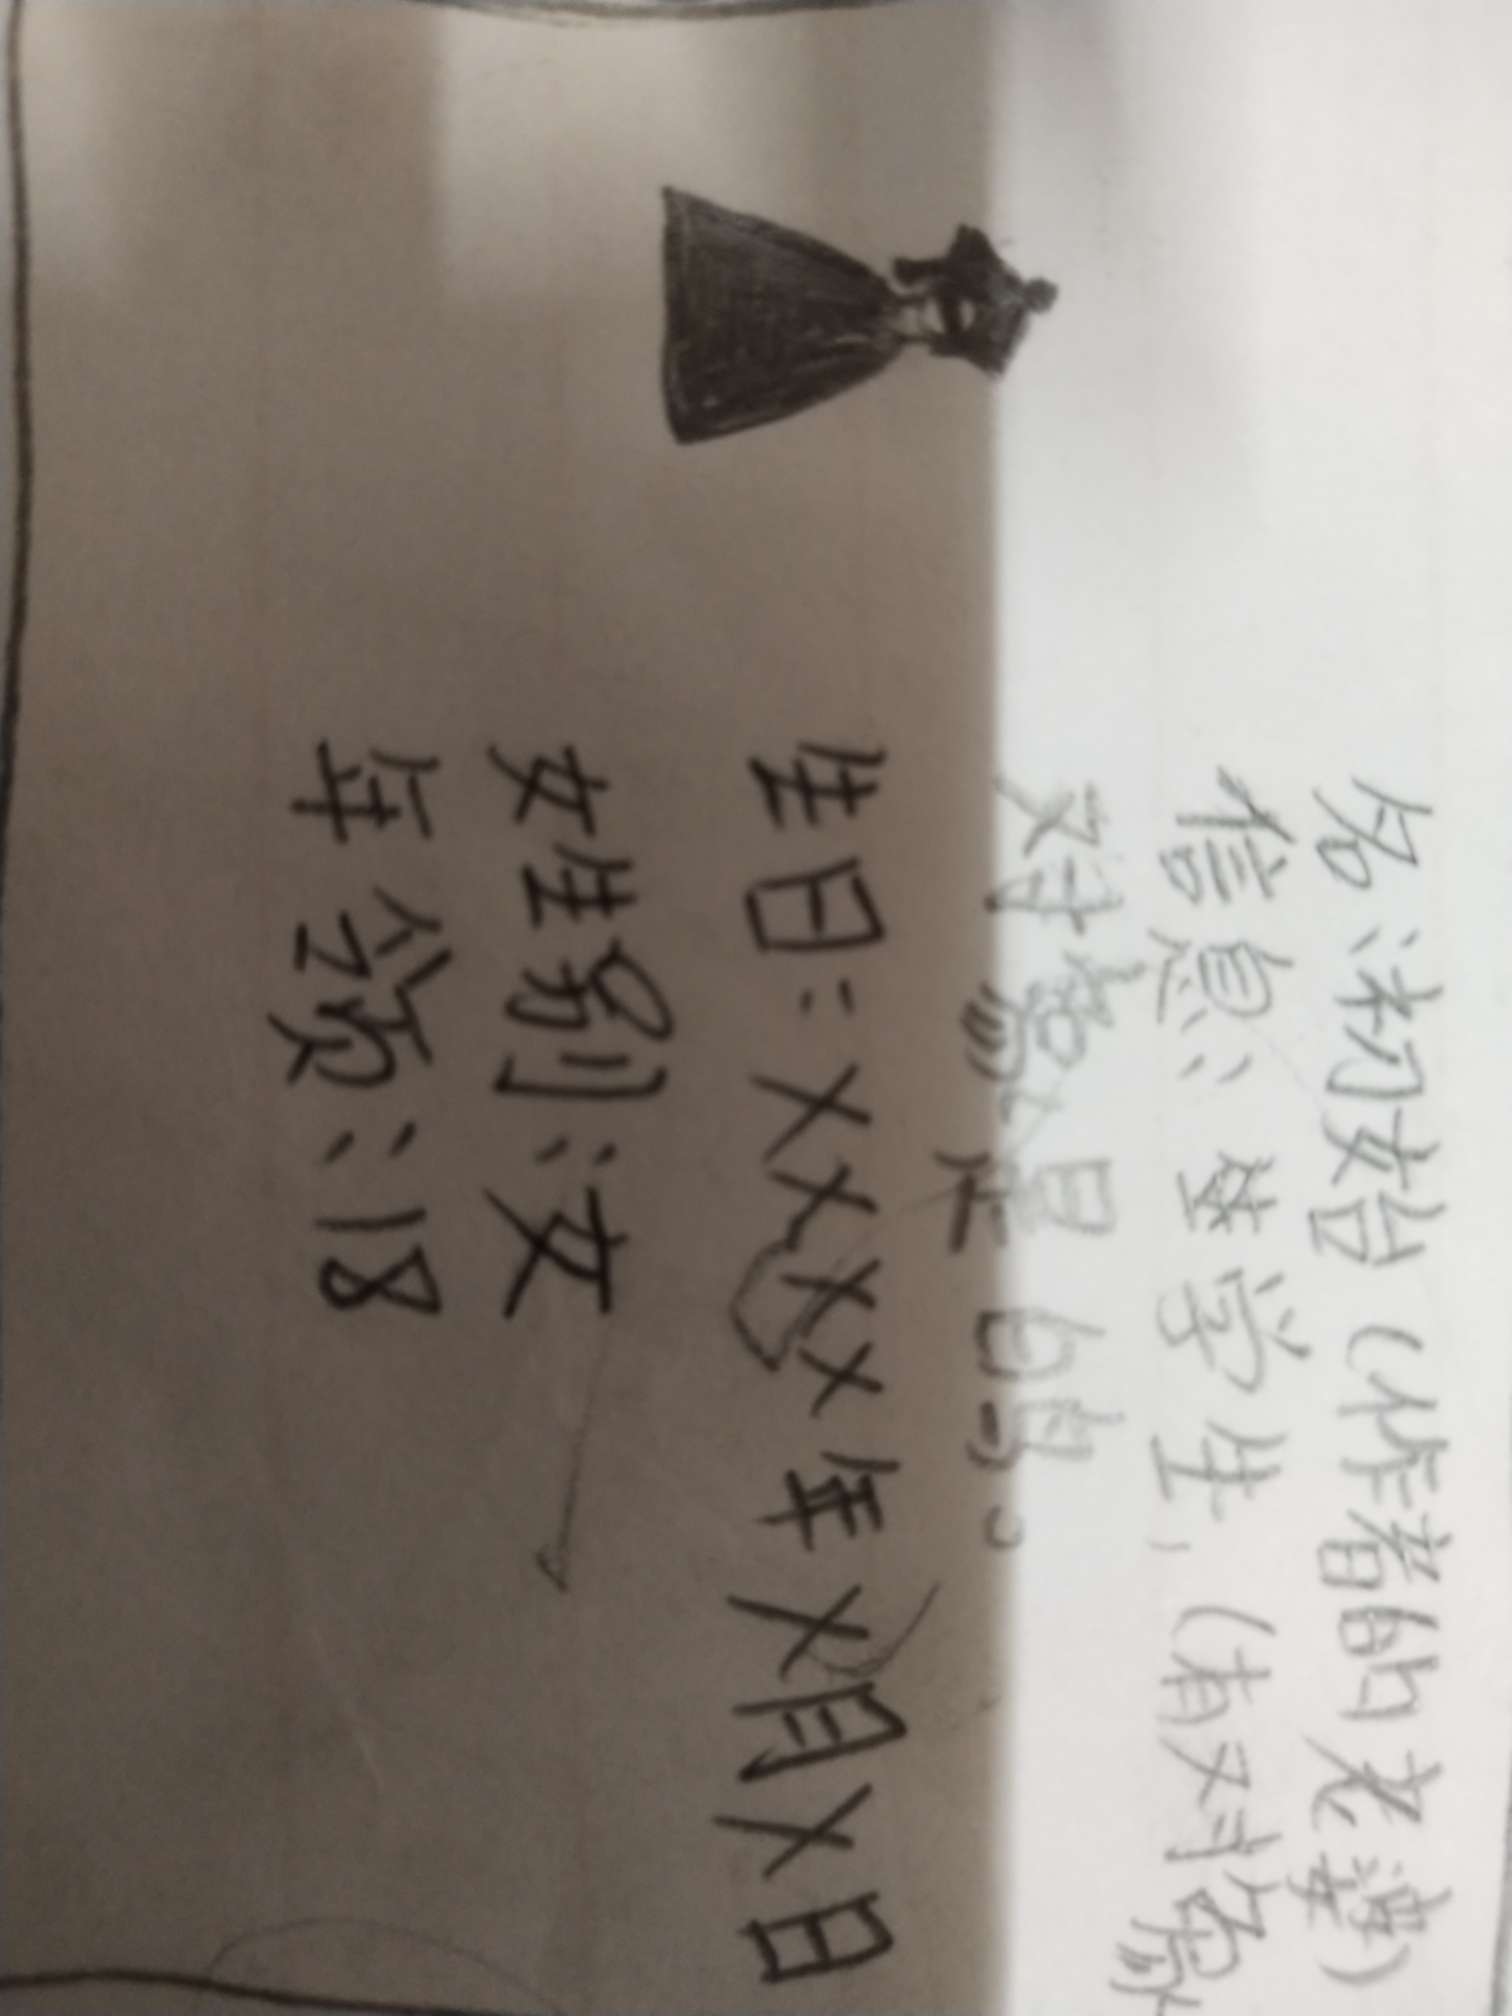 名:初始(作者的老婆)
信息:学生,(有对象
对象是白
生日:XXXX年X月X日
女性别:女
年龄:18